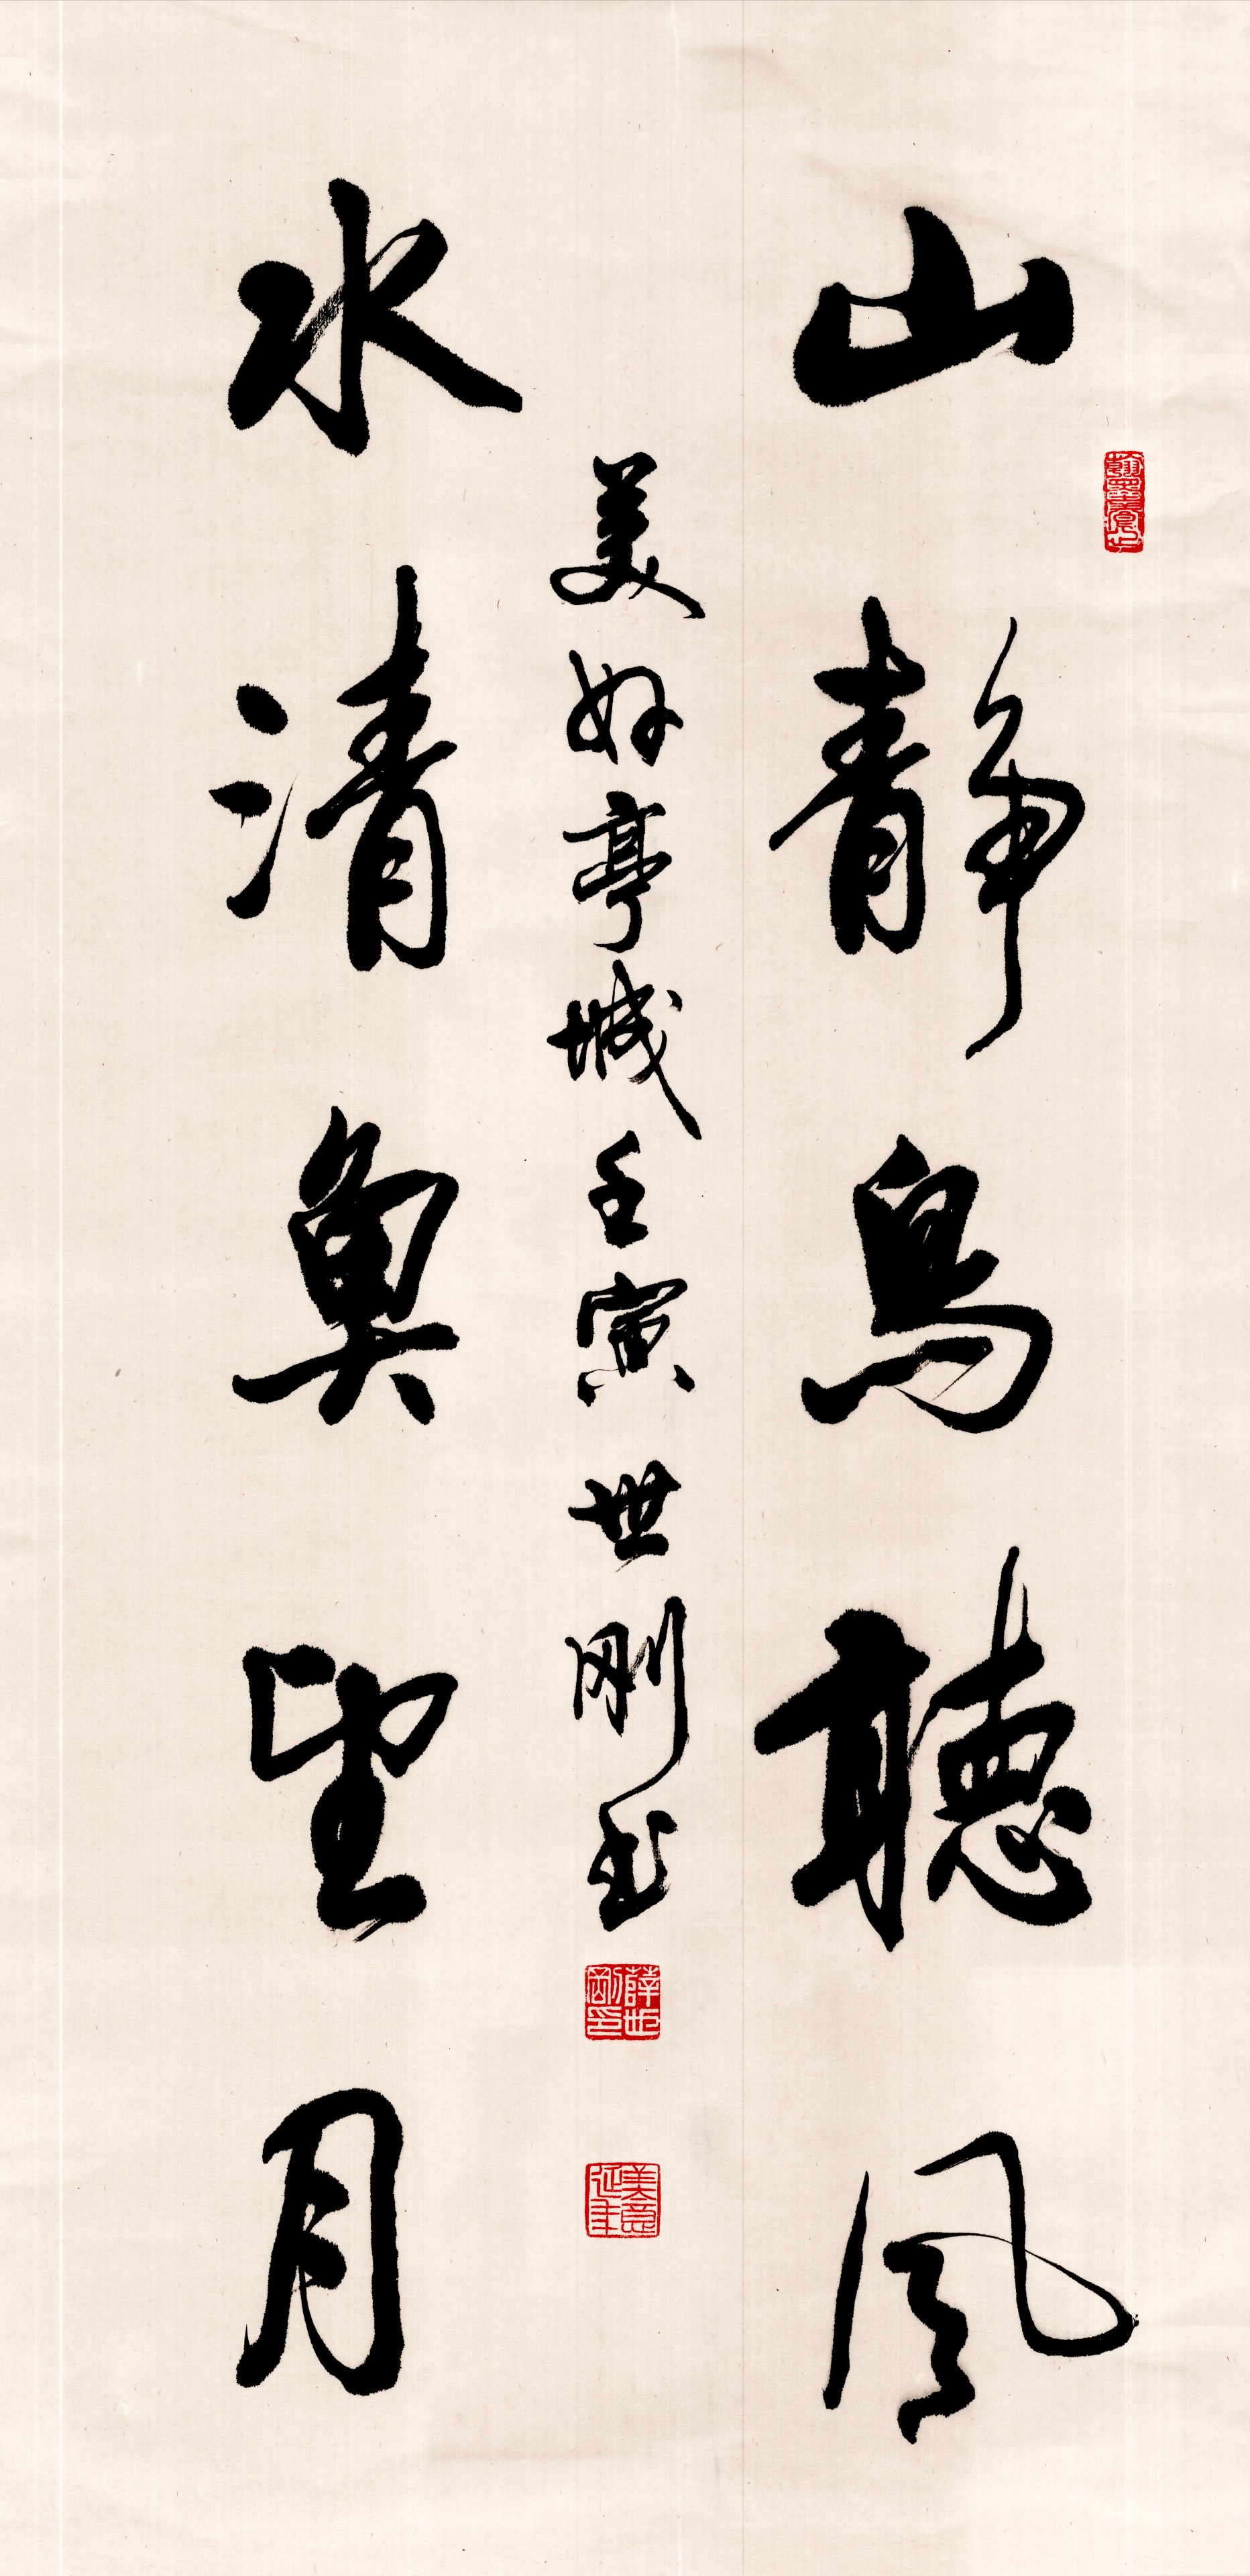 山靜鳥聽風
美好亭城壬寅世刚书
水清魚望月
薛世剛印
美意延年